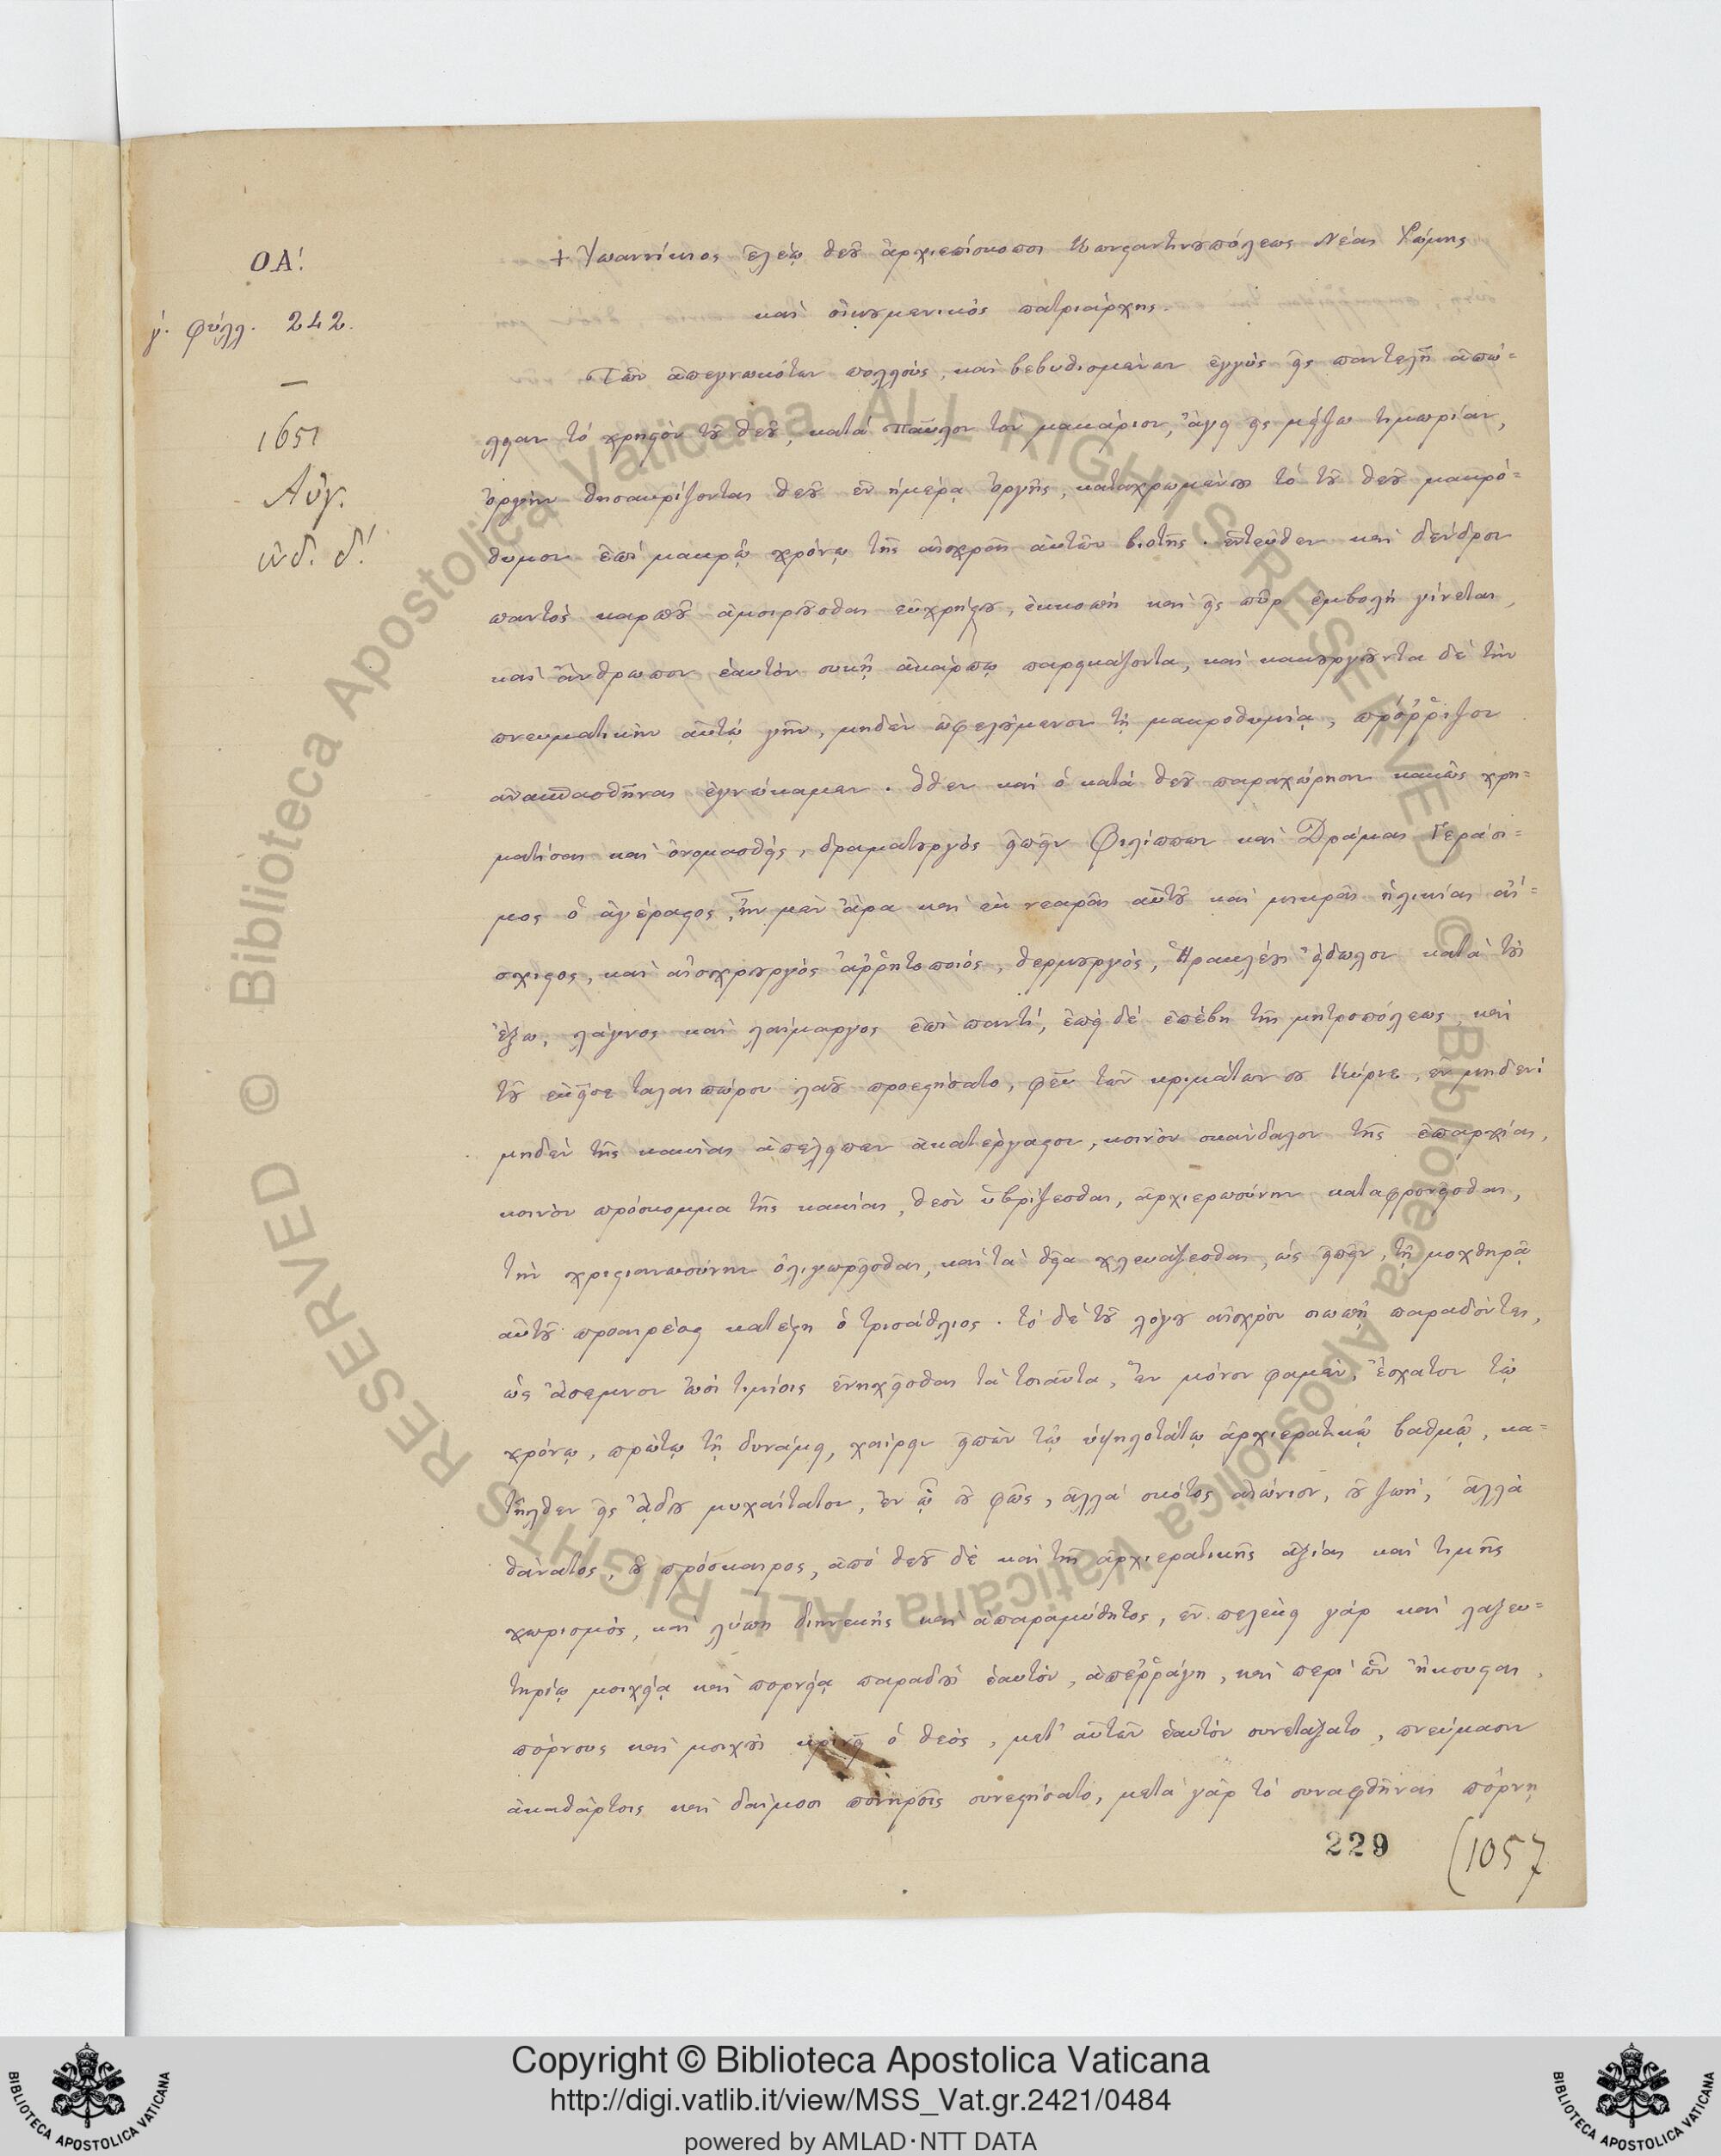 ΟΑ΄.
γ΄. φύλλ. 242.
1651
Αὔγ.
ἰνδ. δ΄.
+ Ἰωαννίκιος ἐλέῳ θεοῦ ἀρχιεπίσκοπος Κωνςαντινουπόλεως Νέας Ῥώμης
καὶ οἰκουμενικὸς πατριάρχης.
Τῶν ἀπεγνωκότων πολλοὺς, καὶ βεβυθισμένων ἐγγὺς εἰς παντελῆ ἀπώ=
λειαν τὸ χρηςὸν τοῦ θεοῦ, κατὰ Παῦλον τὸν μακάριον, ἄγει εἰς μείζω τιμωρίαν,
ὀργὴν θησαυρίζοντας θεοῦ ἐν ἡμέρᾳ ὀργῆς, καταχρωμένους τὸ τοῦ θεοῦ μακρό=
θυμον ἐπὶ μακρῷ χρόνῳ τῆς αἰσχρᾶς αὐτῶν βιοτῆς. ἐντεῦθεν καὶ δένδρον
παντὸς καρποῦ ἀμοιροῦσθαι εὐχρήςου, ἐκκοπὴ καὶ εἰς πῦρ ἐμβολὴ γίνεται,
καὶ ἄνθρωπον ἑαυτὸν συκῇ ἀκάρπῳ παρεικάζοντα, καὶ κακουργοῦντα δὲ τὴν
πνευματικὴν αὐτῷ γῆν, μηδὲν ὠφελούμενον τῇ μακροθυμίᾳ, πρόῤῥιζον
ἀνασπασθῆναι ἐγνώκαμεν. ὅθεν καὶ ὁ κατὰ θεοῦ παραχώρησιν κακῶς χρη=
ματίσας καὶ ὀνομασθεὶς, δραματουργὸς εἰπεῖν Φιλίππων καὶ Δράμας Γεράσι=
μος ὁ ἀγέραςος, ἦν μὲν ἄρα καὶ ἐκ νεαρᾶς αὐτοῦ καὶ μικρᾶς ἡλικίας αἴ=
σχιςος, καὶ αἰσχρουργὸς ἀῤῥητοποιός, θερμουργὸς, Ἡρακλέους εἴδωλον κατὰ τοὺς
ἔξω, λάγνος καὶ λαίμαργος ἐπὶ παντί, ἐπεὶ δὲ ἐπέβη τῆς μητροπόλεως, καὶ
τοῦ ἐκεῖσε ταλαιπώρου λαοῦ προεςήσατο, φεῦ τῶν κριμάτων σου Κύριε, ἐν μηδενὶ
μηδὲν τῆς κακίας ἀπέλειπεν ἀκατέργαςον, κοινὸν σκάνδαλον τῆς ἐπαρχίας,
κοινὸν πρόσκομμα τῆς κακίας, θεὸν ὑβρίζεσθαι, ἀρχιερωσύνην καταφρονεῖσθαι,
τὴν χριςιανωσύνην ὀλιγωρεῖσθαι, καὶ τὰ θεῖα χλευάζεσθαι, ὡς εἰπεῖν, τῇ μοχθηρᾷ
αὐτοῦ προαιρέσει κατέςη ὁ τρισάθλιος. τὸ δὲ τοῦ λόγου αἰσχρὸν σιωπῇ παραδόντες,
ὡς ἄσεμνον ὠσὶ τιμίοις ἐνηχεῖσθαι τὰ τοιαῦτα, ἓν μόνον φαμὲν, ἔσχατον τῷ
χρόνῳ, πρώτῳ τῇ δυνάμει, χαίρειν εἰπὼν τῷ ὑψηλοτάτῳ ἀρχιερατικῷ βαθμῷ, κα=
τῆλθεν εἰς ᾅδου μυχαίτατον, ἐν ᾧ οὐ φῶς, ἀλλὰ σκότος αἰώνιον, οὐ ζωή, ἀλλὰ
θάνατος, οὐ πρόσκαιρος, ἀπὸ θεοῦ δὲ καὶ τῆς ἀρχιερατικῆς ἀξίας καὶ τιμῆς
χωρισμὸς, καὶ λύπη διηνεκὴς καὶ ἀπαραμύθητος, ἐν πελέκει γὰρ καὶ λαξευ=
τηρίῳ μοιχείᾳ καὶ πορνείᾳ παραδοὺς ἑαυτὸν, ἀπεῤῥάγη, καὶ περὶ ὧν ἤκουςαι,
πόρνους καὶ μοιχοὺς κρινεῖ ὁ θεὸς, μετ' αὐτῶν ἑαυτὸν συνετάξατο, πνεύμασιν
ἀκαθάρτοις καὶ δαίμοσι πονηροῖς συνεςήσατο, μετὰ γὰρ τὸ συναφθῆναι πόρνῃ
229
(1057
© Biblioteca Apostolica Vaticana ALL RIGHTS RESERVED © Biblioteca Apostolica Vaticana ALL RIGHTS RESERVED
Copyright © Biblioteca Apostolica Vaticana
http://digi.vatlib.it/view/MSS_Vat.gr.2421/0484
powered by AMLAD·NTT DATA
BIBLIOTECA APOSTOLICA VATICANA
BIBLIOTECA APOSTOLICA VATICANA